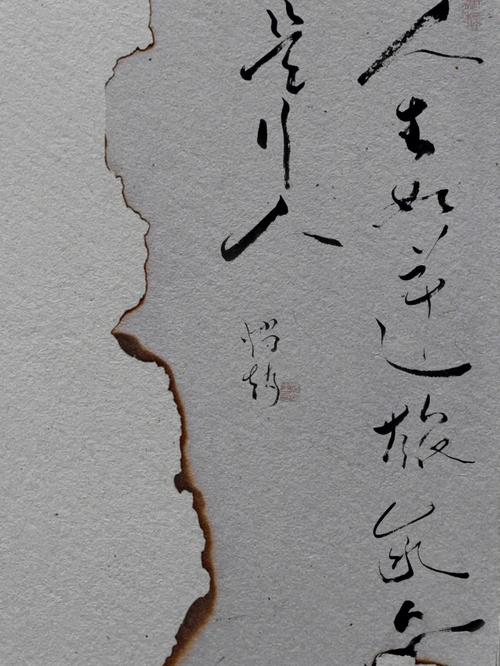 人生如逆旅我亦
是行人